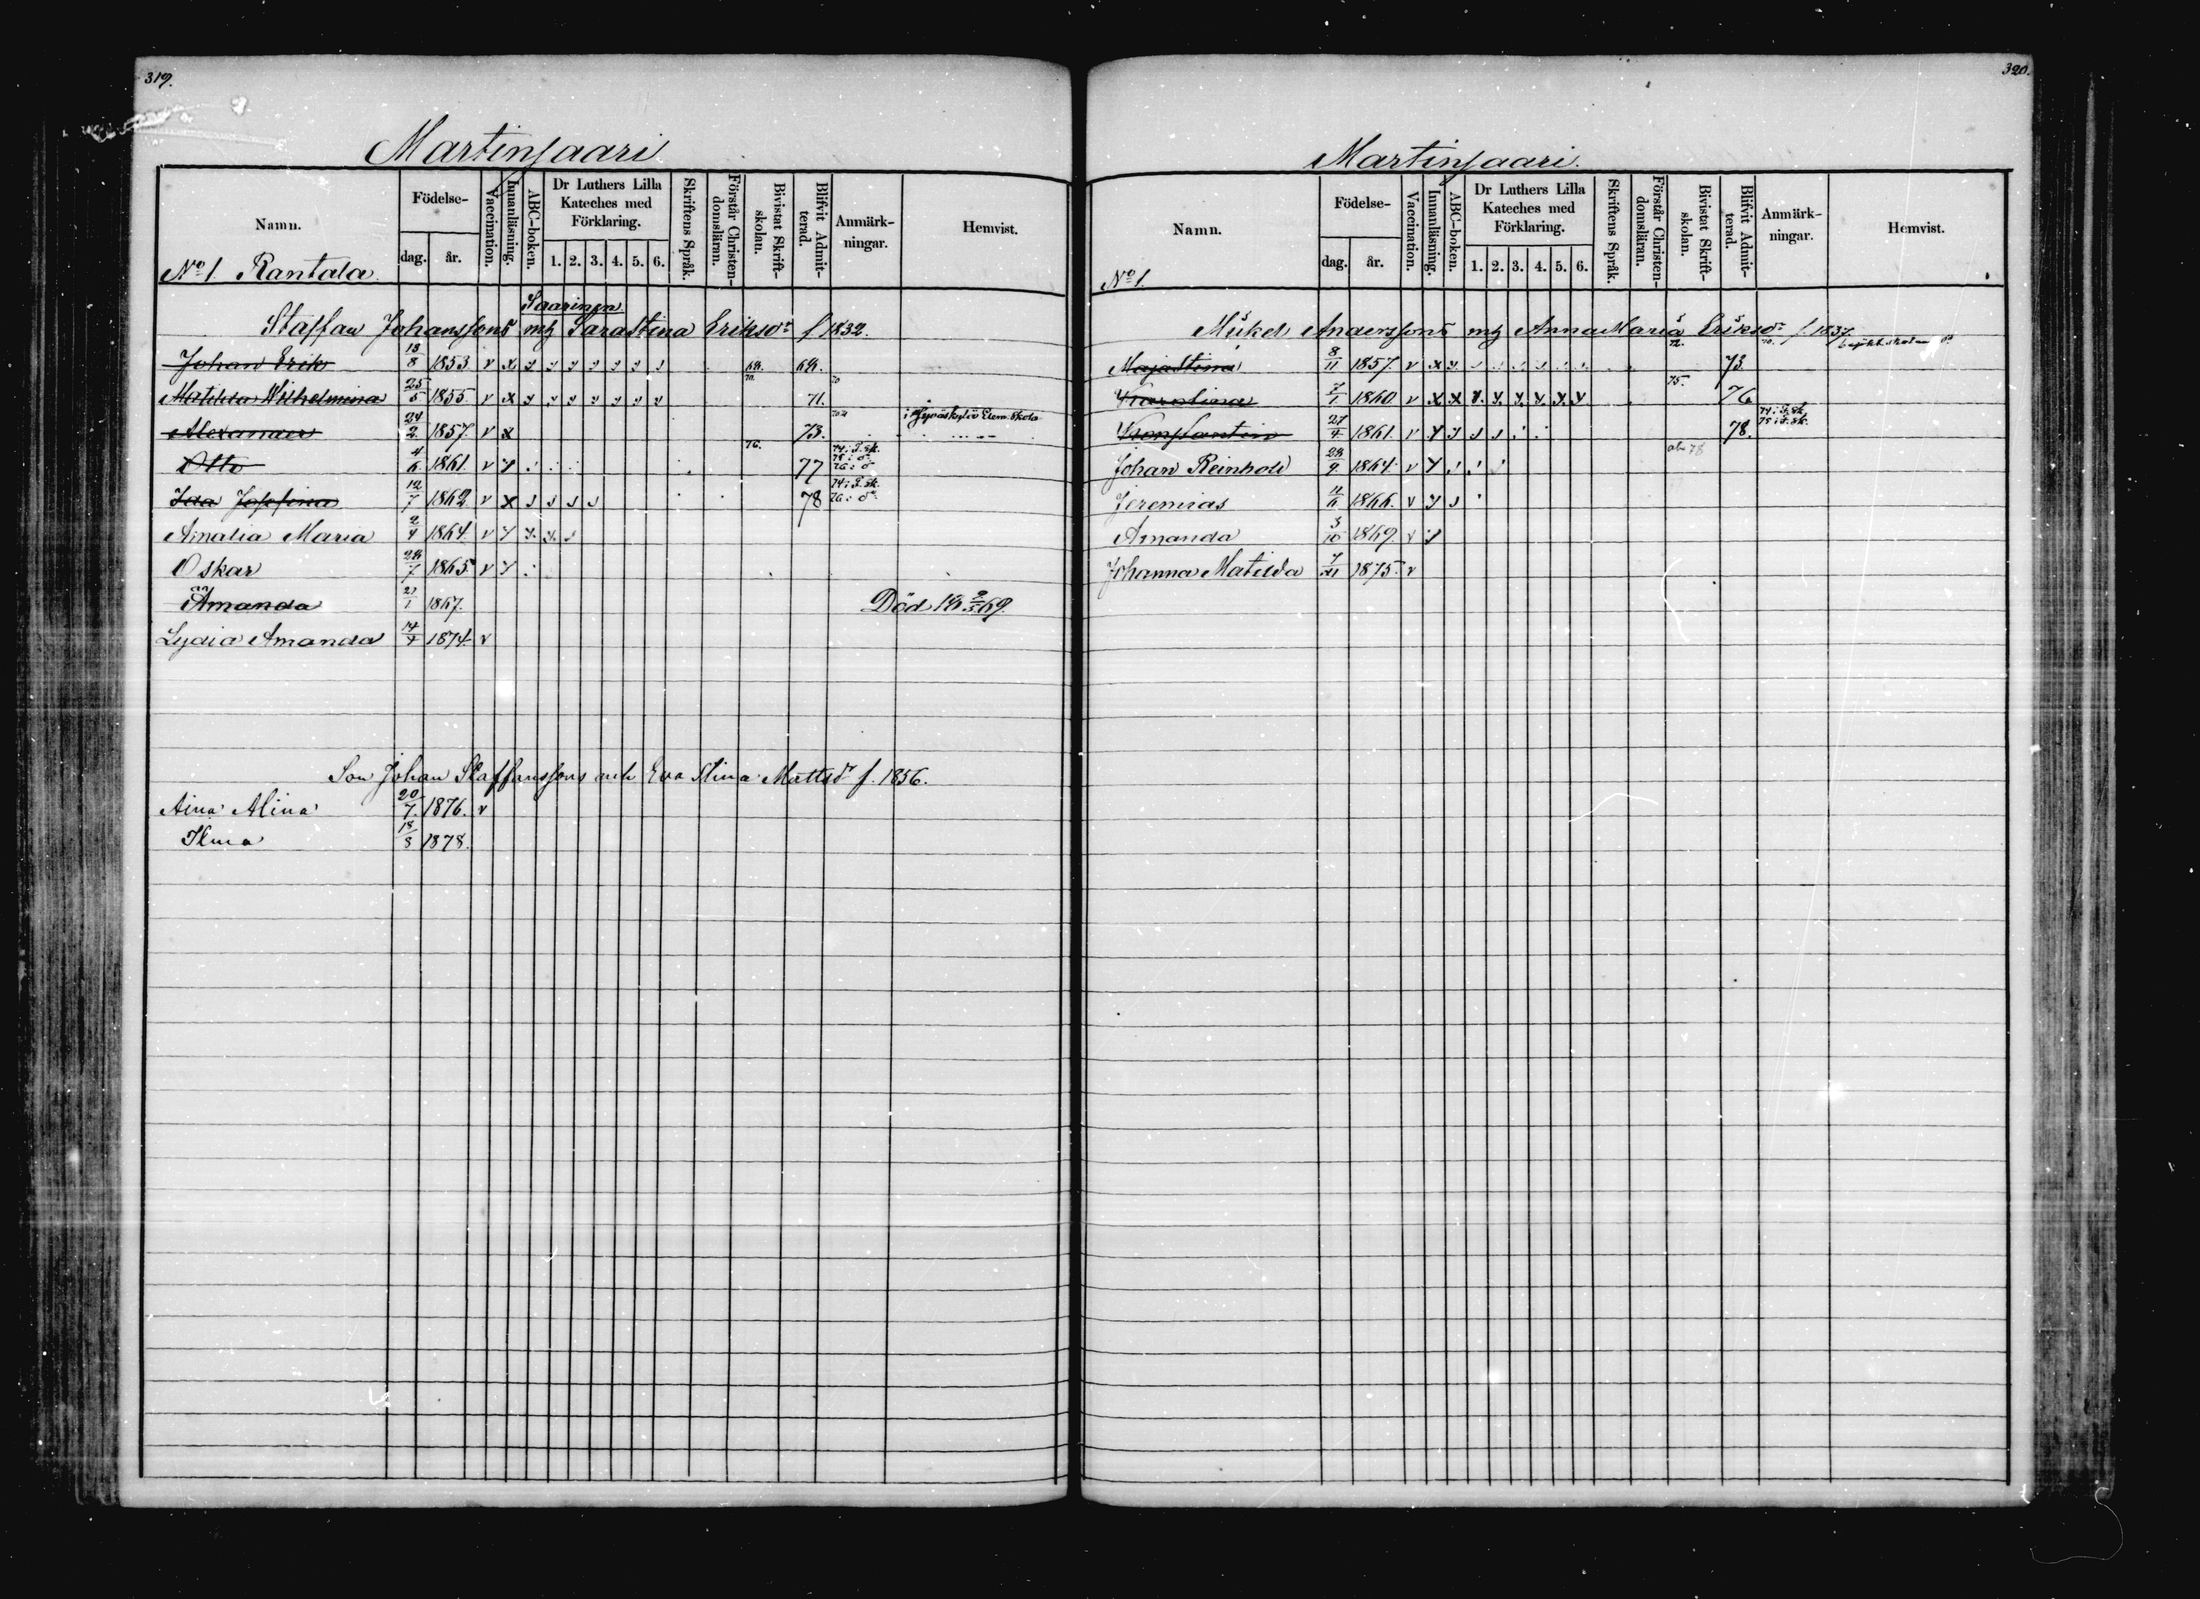 319.
Martinsaari
Namn.
Födelse-
dag.
år.
Vaccination.
Innanläsning.
ABC-boken.
Dr Luthers Lilla
Kateches med
Förklaring.
1. 2. 3. 4. 5. 6.
Skriftens Språk.
Förstår Christen-
domsläran.
Bivistat Skrift-
skolan.
Blifvit Admit-
terad.
Anmärk-
ningar.
Hemvist.
No 1 Rantala
Saarinen
Staffan Johanssons m h Sarastina Eriksdr f 1832.
Johan Erik 13/8 1853 v x y y y y y y y 69. 69.
Matilda Wilhelmina 25/5 1855 v x y y y y y y y 70. 71. 70
Alexander 24/2 1857 v x 73. i Jyväskylä Elem. Skola
Otto 4/6 1861 v y 76. 77 74 i S. sk.
Ida Josefina 12/7 1862 v x 78 74 i S. sk.
Amalia Maria 2/4 1864 v y y. y.
Oskar 1865 v y
Amanda 21/1 1867. Död 69.
Lydia Amanda 14/4 1874 v
Son Johan Staffanssons och Eva Stina Mattsdr f. 1856.
Aina Alina 20/7. 1876. v
Ilma 18/8 1878.
320.
Martinsaari.
Namn.
Födelse-
dag.
år.
Vaccination.
Innanläsning.
ABC-boken.
Dr Luthers Lilla
Kateches med
Förklaring.
1. 2. 3. 4. 5. 6.
Skriftens Språk.
Förstår Christen-
domsläran.
Bivistat Skrift-
skolan.
Blifvit Admit-
terad.
Anmärk-
ningar.
Hemvist.
No 1.
Mickel Anderssons m h Anna Maria Eriksdr f 1837.
Majastina 8/11 1857. v x y 72. 73. 70.
1860 v x x y. y. y. y. y. y 75. 76
Konstantin 27/4 1861 v y 78. 74 i S. sk.
75 i S. sk.
Johan Reinhold 28/9 1864 v y
Jeremias 1866. v y
Amanda 3/10 1869. v y
Johanna Matilda 1875. v